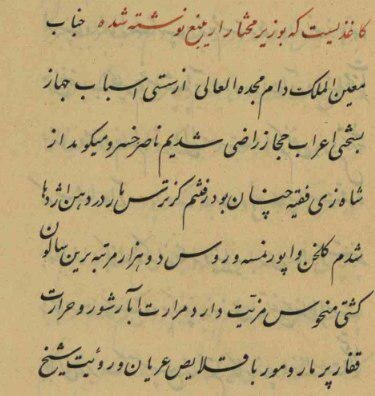 کاغذیست که بوزیر مختار از ینبع نوشته شده جناب
معین الملک دام مجده العالی از سستی اسباب جهاز
بسختی اعراب حجاز راضی شدیم ناصر خسرو میگوید از
شاه زی فقیه چنان بود رفتنم کز ترس مار در دهن اژدها
شدم گلخن واپور نمسه و روس دو هزار مرتبه برین سالون
کشتی منحوس مزیت دارد مرارت آبار شور و حرارت
قفار پر مار و مور با قلایص عریان و رؤیت شیخ